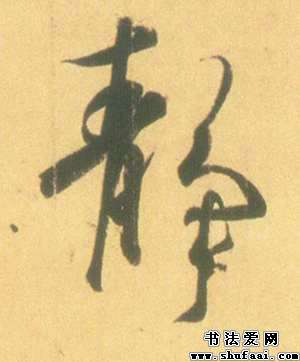 静
书法爱网
www.shufaai.com